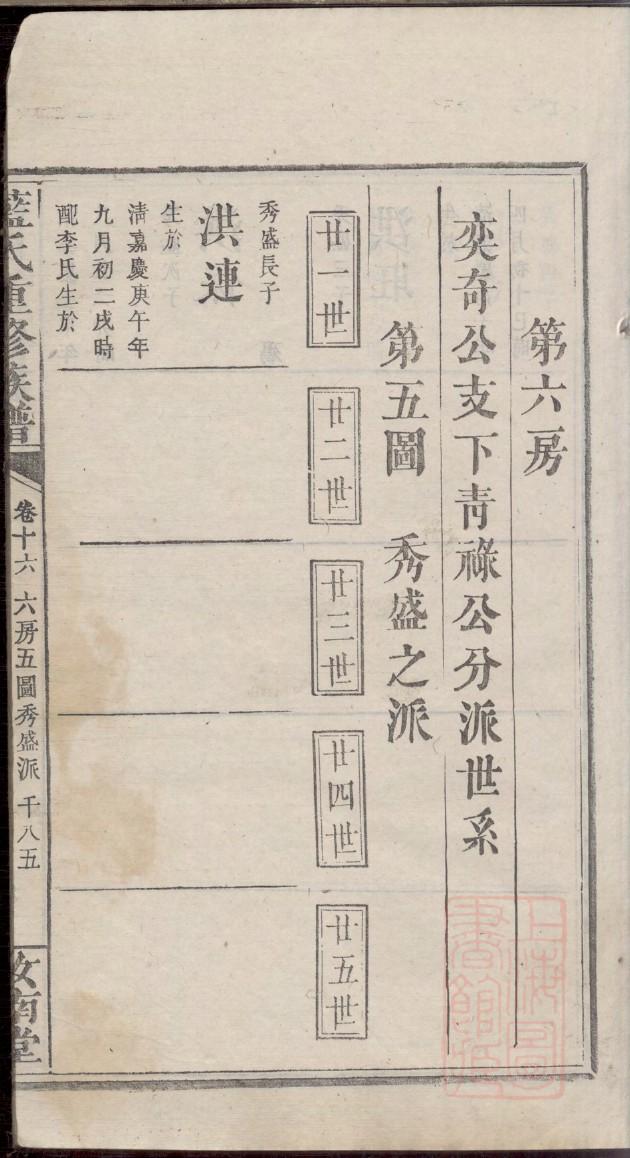 第六房
奕奇公支下青祿公分派世系
第五圖 秀盛之派
廿一世
廿二世
廿三世
廿四世
廿五世
秀盛長子
洪連
生於
清嘉慶庚午年
九月初二戌時
配李氏生於
藍氏重修族譜
卷十六 六房五圖秀盛派 千八五
汝南堂